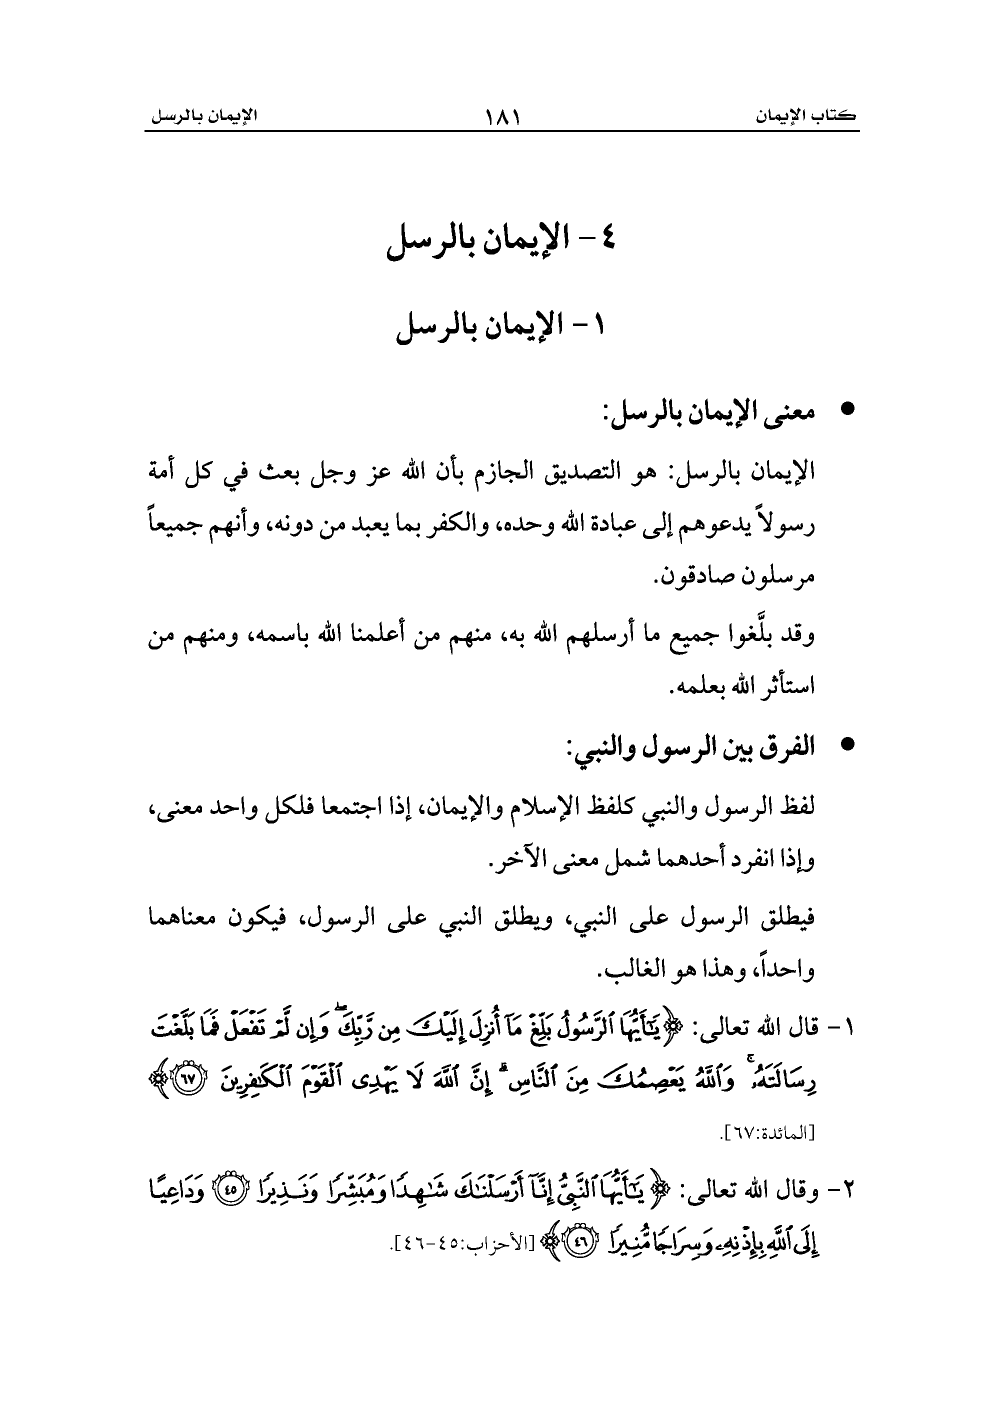 كتاب الإيمان ١٨١ الإيمان بالرسل
٤- الإيمان بالرسل
١- الإيمان بالرسل
● معنى الإيمان بالرسل:
الإيمان بالرسل: هو التصديق الجازم بأن الله عز وجل بعث في كل أمة
رسولاً يدعوهم إلى عبادة الله وحده، والكفر بما يعبد من دونه، وأنهم جميعاً
مرسلون صادقون.
وقد بلَّغوا جميع ما أرسلهم الله به، منهم من أعلمنا الله باسمه، ومنهم من
استأثر الله بعلمه.
● الفرق بين الرسول والنبي:
لفظ الرسول والنبي كلفظ الإسلام والإيمان، إذا اجتمعا فلكل واحد معنى،
وإذا انفرد أحدهما شمل معنى الآخر.
فيطلق الرسول على النبي، ويطلق النبي على الرسول، فيكون معناهما
واحداً، وهذا هو الغالب.
١- قال الله تعالى: ﴿يَٰٓأَيُّهَا ٱلرَّسُولُ بَلِّغۡ مَآ أُنزِلَ إِلَيۡكَ مِن رَّبِّكَۖ وَإِن لَّمۡ تَفۡعَلۡ فَمَا بَلَّغۡتَ
رِسَالَتَهُۥۚ وَٱللَّهُ يَعۡصِمُكَ مِنَ ٱلنَّاسِۗ إِنَّ ٱللَّهَ لَا يَهۡدِى ٱلۡقَوۡمَ ٱلۡكَٰفِرِينَ ٦٧﴾
[المائدة:٦٧].
٢- وقال الله تعالى: ﴿يَٰٓأَيُّهَا ٱلنَّبِىُّ إِنَّآ أَرۡسَلۡنَٰكَ شَٰهِدٗا وَمُبَشِّرٗا وَنَذِيرٗا ٤٥ وَدَاعِيًا
إِلَى ٱللَّهِ بِإِذۡنِهِۦ وَسِرَاجٗا مُّنِيرٗا ٤٦﴾ [الأحزاب:٤٥-٤٦].